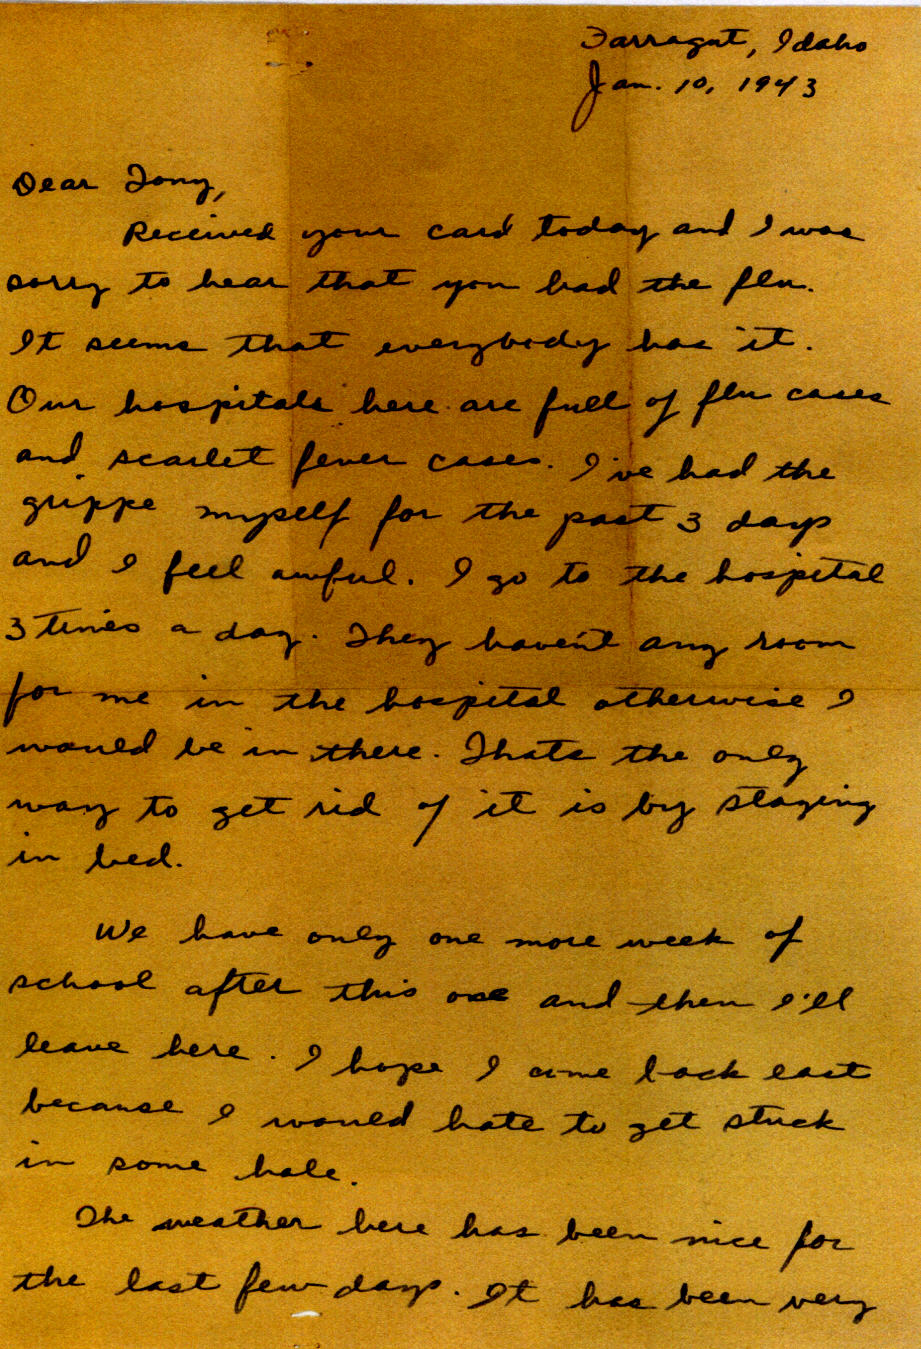 Farragut, Idaho
Jan. 10, 1943
Dear Tony,
Received your card today and I was
sorry to hear that you had the flu.
It seems that everybody has it.
Our hospitals here are full of flu cases
and scarlet fever cases. I've had the
grippe myself for the past 3 days
and I feel awful. I go to the hospital
3 times a day. They haven't any room
for me in the hospital otherwise I
would be in there. Thats the only
way to get rid of it is by staying
in bed.
We have only one more week of
school after this one and then I'll
leave here. I hope I come back east
because I would hate to get stuck
in some hole.
The weather here has been nice for
the last few days. It has been very